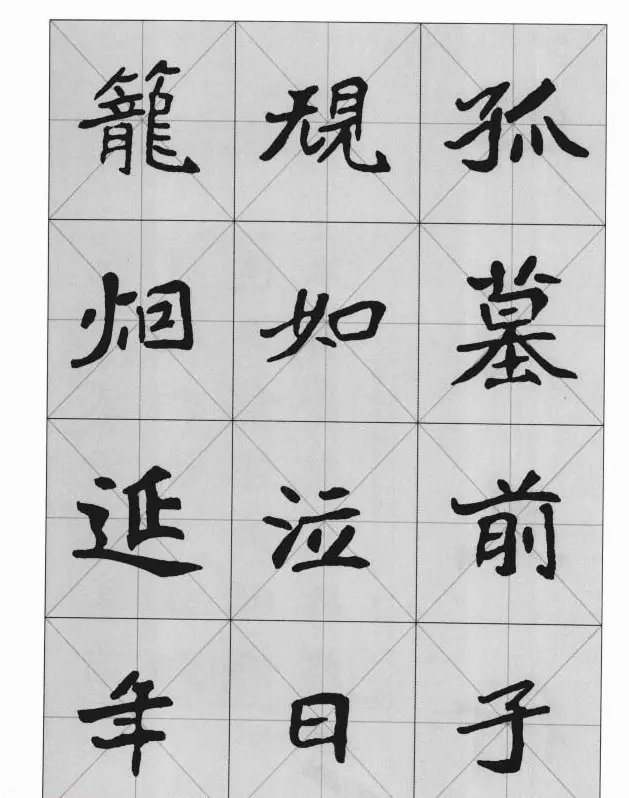 孤墓前子
規如泣日
籠烟延年